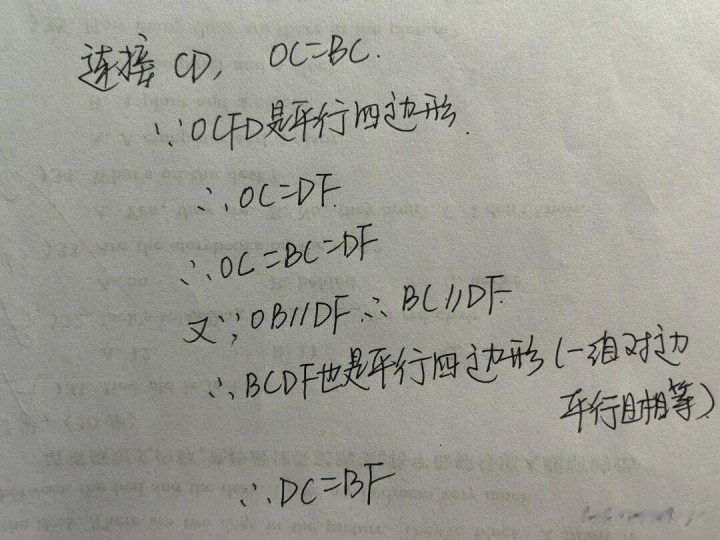 连接 CD, OC=BC.
∵OCFD是平行四边形.
∴OC=DF.
∴OC=BC=DF
又∵OB//DF ∴BC//DF.
∴BCDF也是平行四边形(一组对边
平行且相等)
∴DC=BF